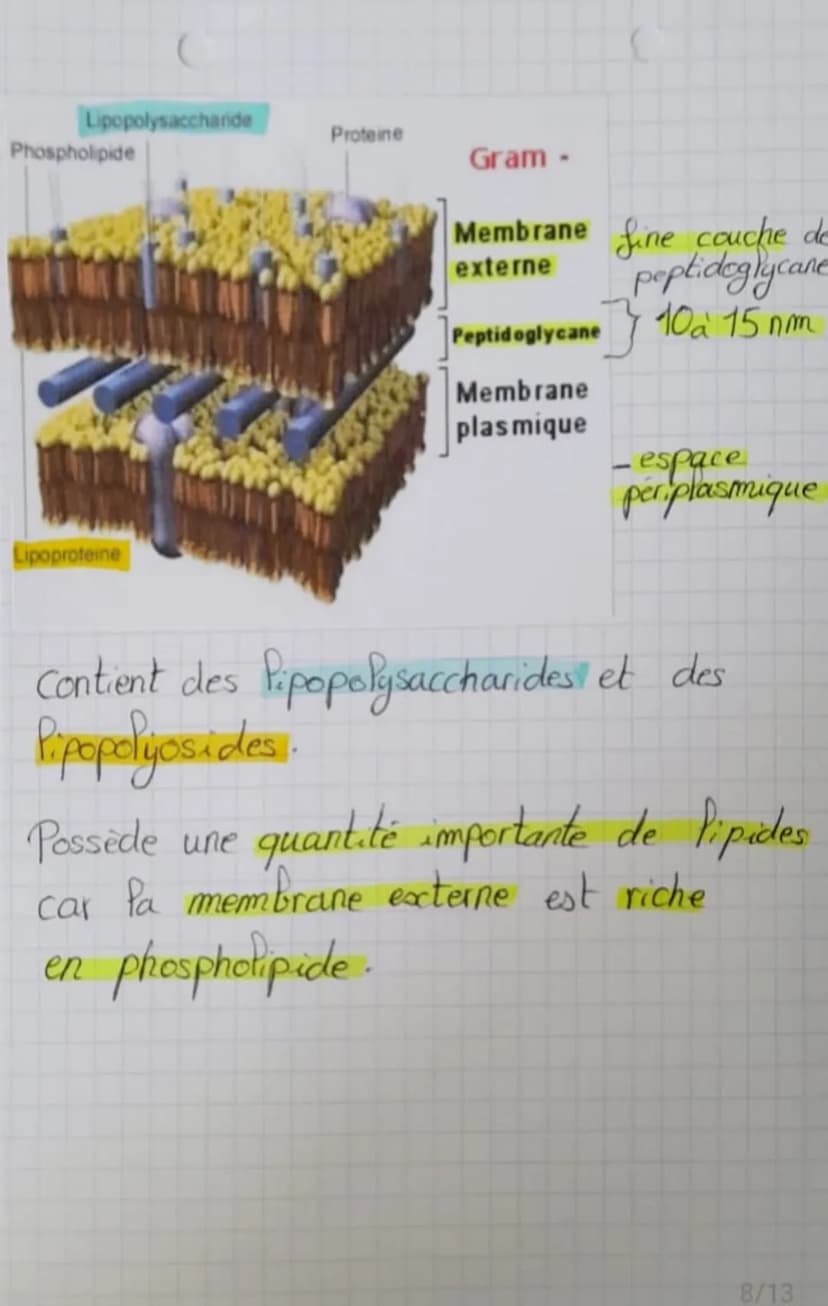 Lipopolysaccharide
Phospholipide
Proteine
Gram -
Membrane
externe
fine couche de
peptidoglycane
Peptidoglycane } 10 à 15 nm
Membrane
plasmique
- espace
périplasmique
Lipoproteine
Contient des lipopolysaccharides et des
lipopolyosides.
Possède une quantité importante de lipides
car la membrane externe est riche
en phospholipide.
8/13